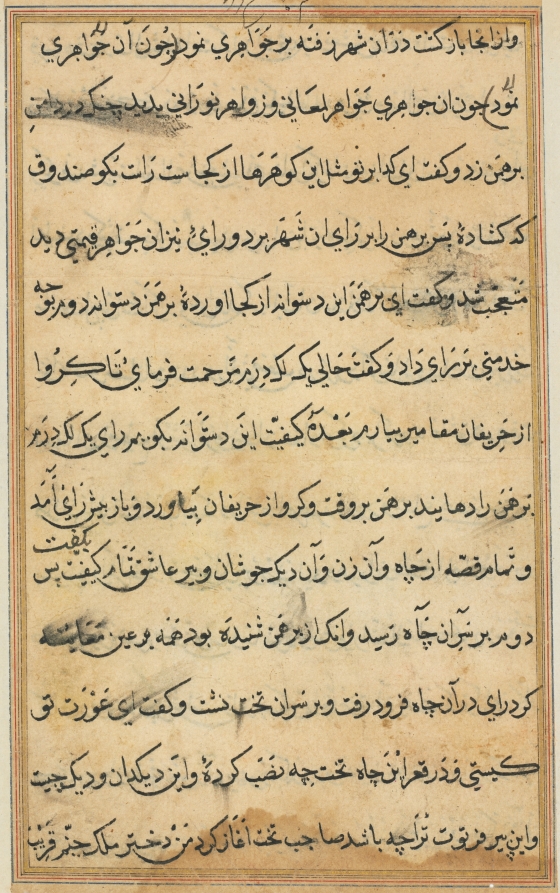 واز انجا باز کشت در آن شهر رفته بر جواهری نمود چون آن جواهری
نمود چون ان جواهری جواهر معانی و زواهر نورانی بدید چنک در دامن
برهمن زد و کفت ای کدا بر تو مثل این کوهرها از کجاست رات بکو صندوق
که کشادهٔ پس برهمن را بر رای ان شهر برد و رای نیز ان جواهر قیمتی دید
متعجب شد و کفت ای برهمن این دستواند از کجا اوردهٔ برهمن دستواند دوم بوجه
خدمتی بر رای داد و کفت حالی یک لک درم مرحمت فرمای تا کروا
از حریفان مقامیر بیارم بعده کیفیت این دستواند بکویم رای یک لک درم
برهمن را دهانید برهمن برو رفت و کرو از حریفان بیاورد و باز پیش رای آمد
بکفت
و تمام قصه از چاه و آن زن و آن دیک جوشان و پیر عاشق تمام کیفیت پس
دوم بر سر ان چاه رسید و انک از برهمن شنیده بود همه بر عین معاینه
کرد رای در آن چاه فرود رفت و بر سر ان تخت نشت و کفت ای عورت تو
کیستی و در قعر این چاه تخت چه نصب کردهٔ و این دیکدان و دیک چیت
و این پیر فرتوت ترا چه باشد صاحب تخت آغاز کرد من دختر ملک جنم